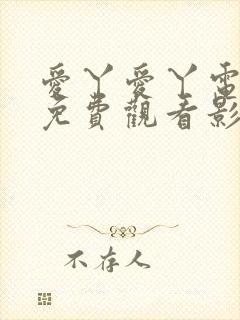 愛丫愛丫電
免費觀看影
不存人